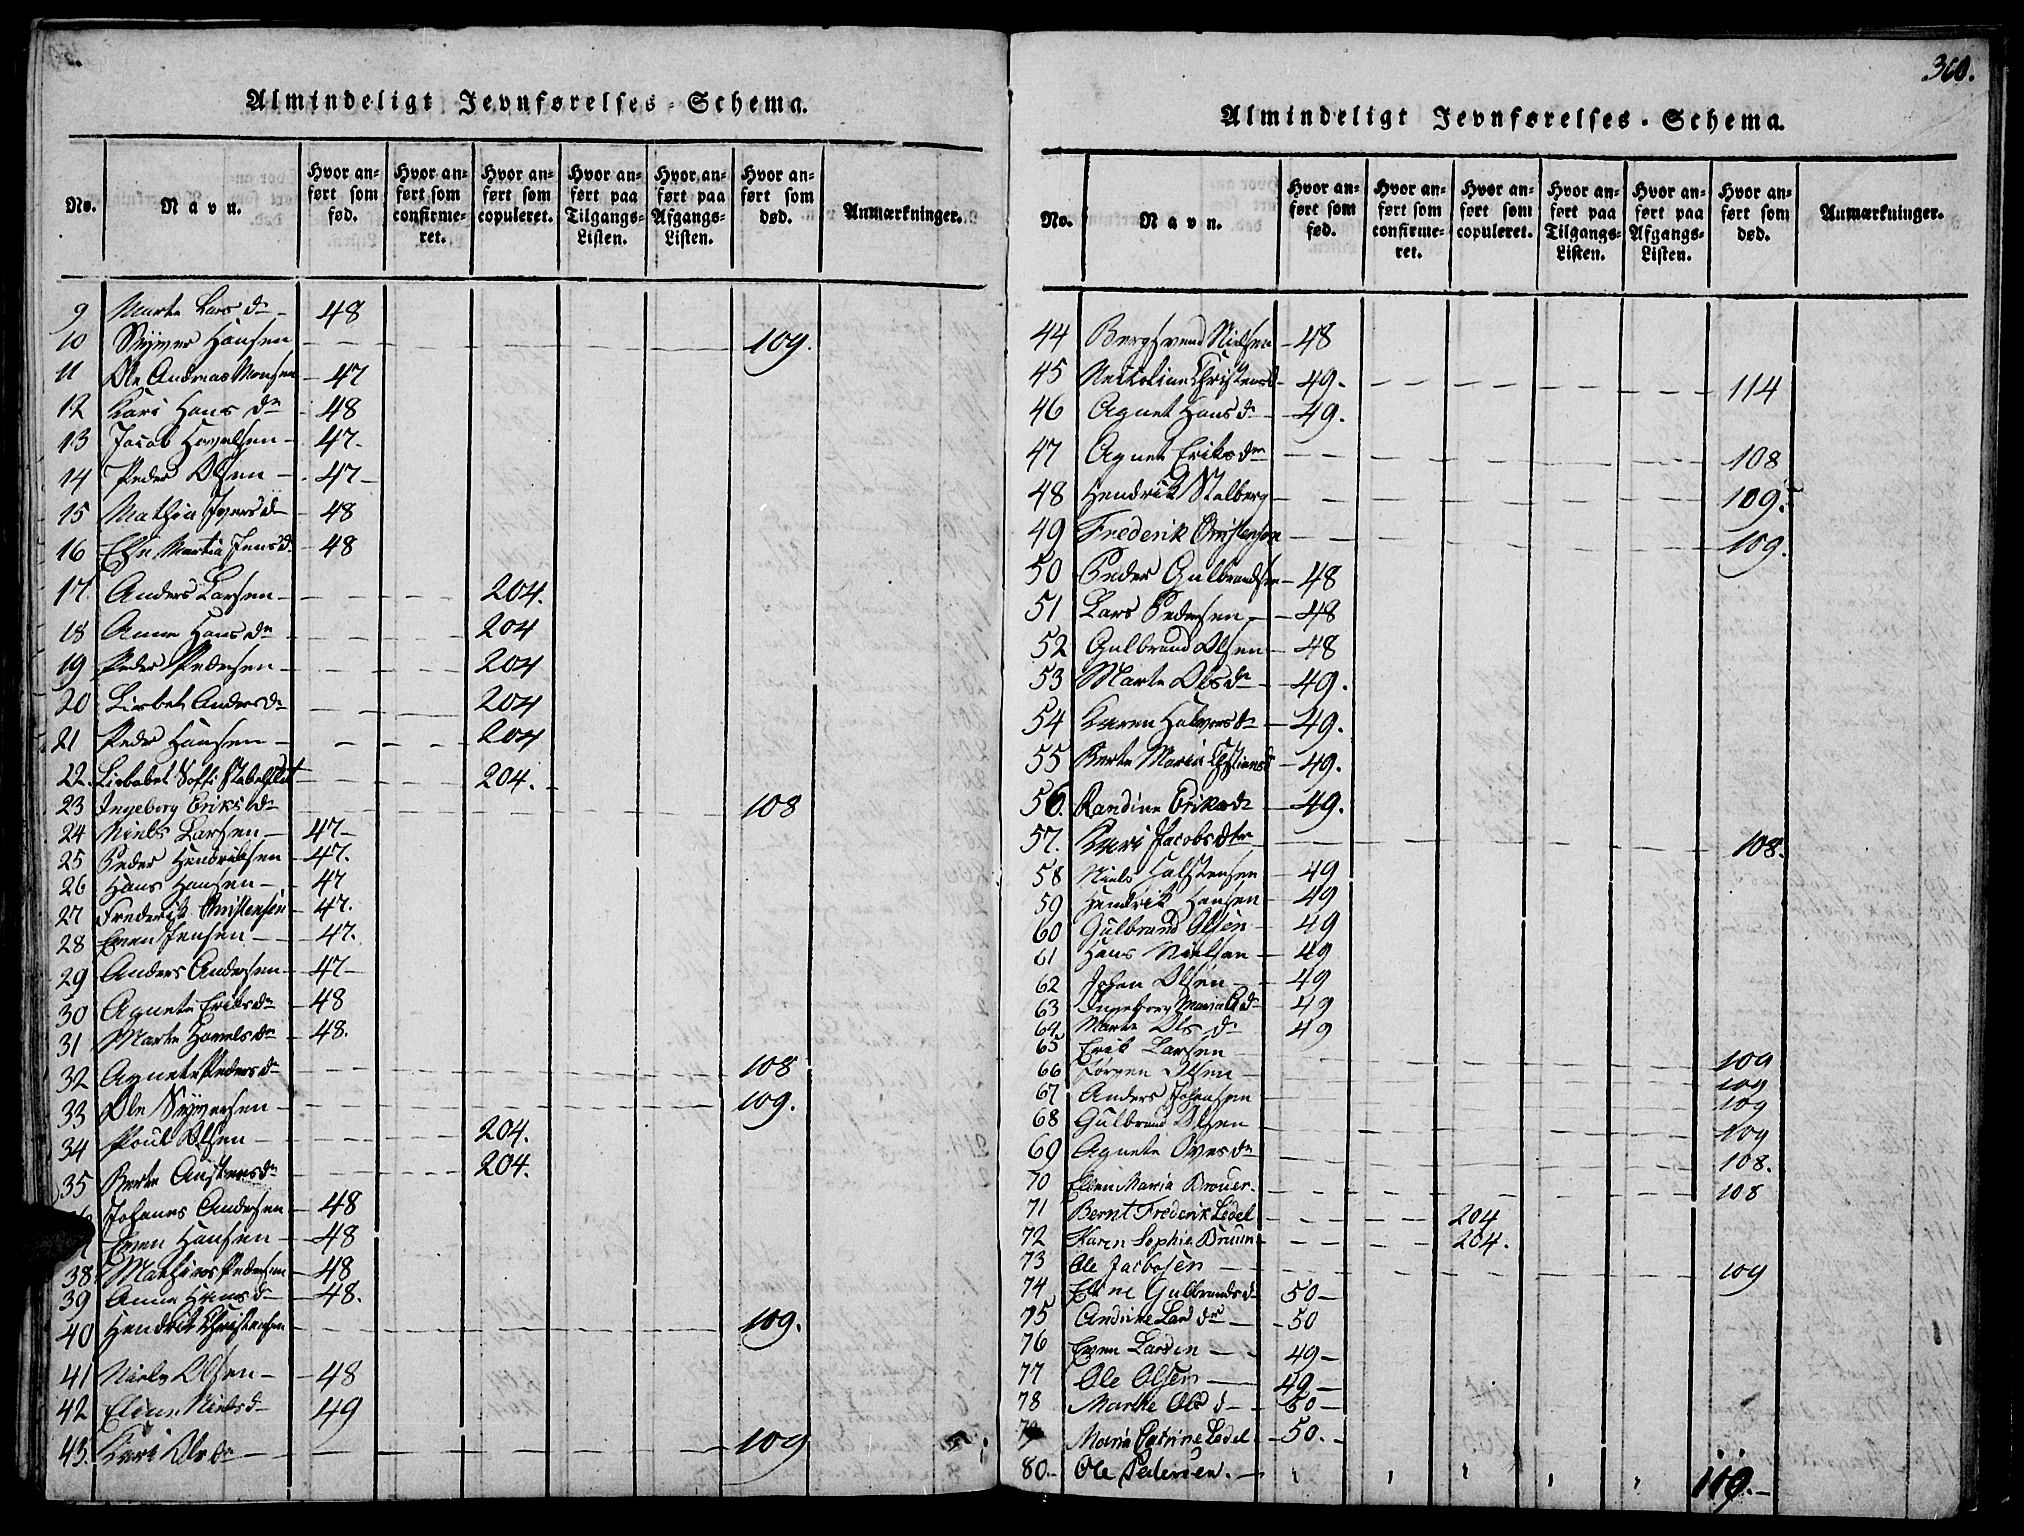 Almindeligt Jevnførelses-Schema.
No. Navn. Hvor anført som fød. Hvor anført som confirmeret. Hvor anført som copuleret. Hvor anført paa Tilgangs-Listen. Hvor anført paa Afgangs-Listen. Hvor anført som død. Anmærkninger.
9 Marte Lars dr 48
10 Syver Hansen 109.
11 Ole Andreas Monsen 47
12 Kari Hans dr 48
13 Jacob Hovelsen 47
14 Peder Olsen 47
15 Mathia Ivers dr 48
16 Else Martia Jens dr 48
17. Anders Larsen 204.
18 Anne Hans dr 204
19 Peder Pedersen 204
20 Lisbet Anders dr 204
21 Peder Hansen 204
22. Lisbabet Soffi 204.
23 Ingeborg Eriks dr 108
24 Niels Larsen 47
25 Peder Hendriksen 47.
26 Hans Hansen 47
27 Frederik Christensen 47.
28 Even Jensen 47.
29 Anders Andersen 47
30 Agnete Eriks dr 48
31 Marte Hovels dr 48.
32 Agnete Peders dr 108
33 Ole Syversen 109.
34 Poul Olsen 204.
35 Berte dr 204.
Johanes Andersen 48
Even Hansen 48
38 Mathias Pedersen 48
39 Anne Hans dr 48.
40 Hendrik Christensen 109.
41 Niels Olsen 48
42 Eline Niels dr 49
43. Kari Ols dr 109
360.
Almindeligt Jevnførelses-Schema.
No. Navn. Hvor anført som fød. Hvor anført som confirmeret. Hvor anført som copuleret. Hvor anført paa Tilgangs-Listen. Hvor anført paa Afgangs-Listen. Hvor anført som død. Anmærkninger.
44 Bergsvend Nielsen 48
45 Christens d 49 114
46 Agnet Hans dr 49.
47 Agnet Eriks dr 108
48 Hendrik Stalberg 109.
49 Frederik Christensen 109.
50 Peder Gulbrandsen 48
51 Lars Pedersen 48
52 Gulbrand Olsen 48
53 Marte Ols dr 49.
54 Karen Halvors dr 49.
55 Berte Maria 49.
56. Randine Eriks dr 49.
57. Kari Jacobs dtr 108.
58 Niels Halstensen 49
59 Hendrik Hansen 49
60 Gulbrand Olsen 49
61 Hans Nielsen 49
62 Johan Olsen 49
63 Ingeborg Maria dr 49
64 Marte Ols dr 49
65 Erik Larsen 109
66 Jørgen Olsen 109
67 Anders Johansen 109
68 Gulbrand Olsen 109
69 Agnete Ives dr 108.
70 Ellen Maria Brouer. 108
71 Bernt Frederik Ledel 204
72 Karen Sophia Bruun 204.
73 Ole Jacobsen 109
74 Eline Gulbrands dr 50
75 Andrine Lars dr 50
76 Even Larsen 49
77 Ole Olsen 49
78 Marthe Ols d 50
79 Maria Catrine Ledel 50.
80. Ole Pedersen. 119.